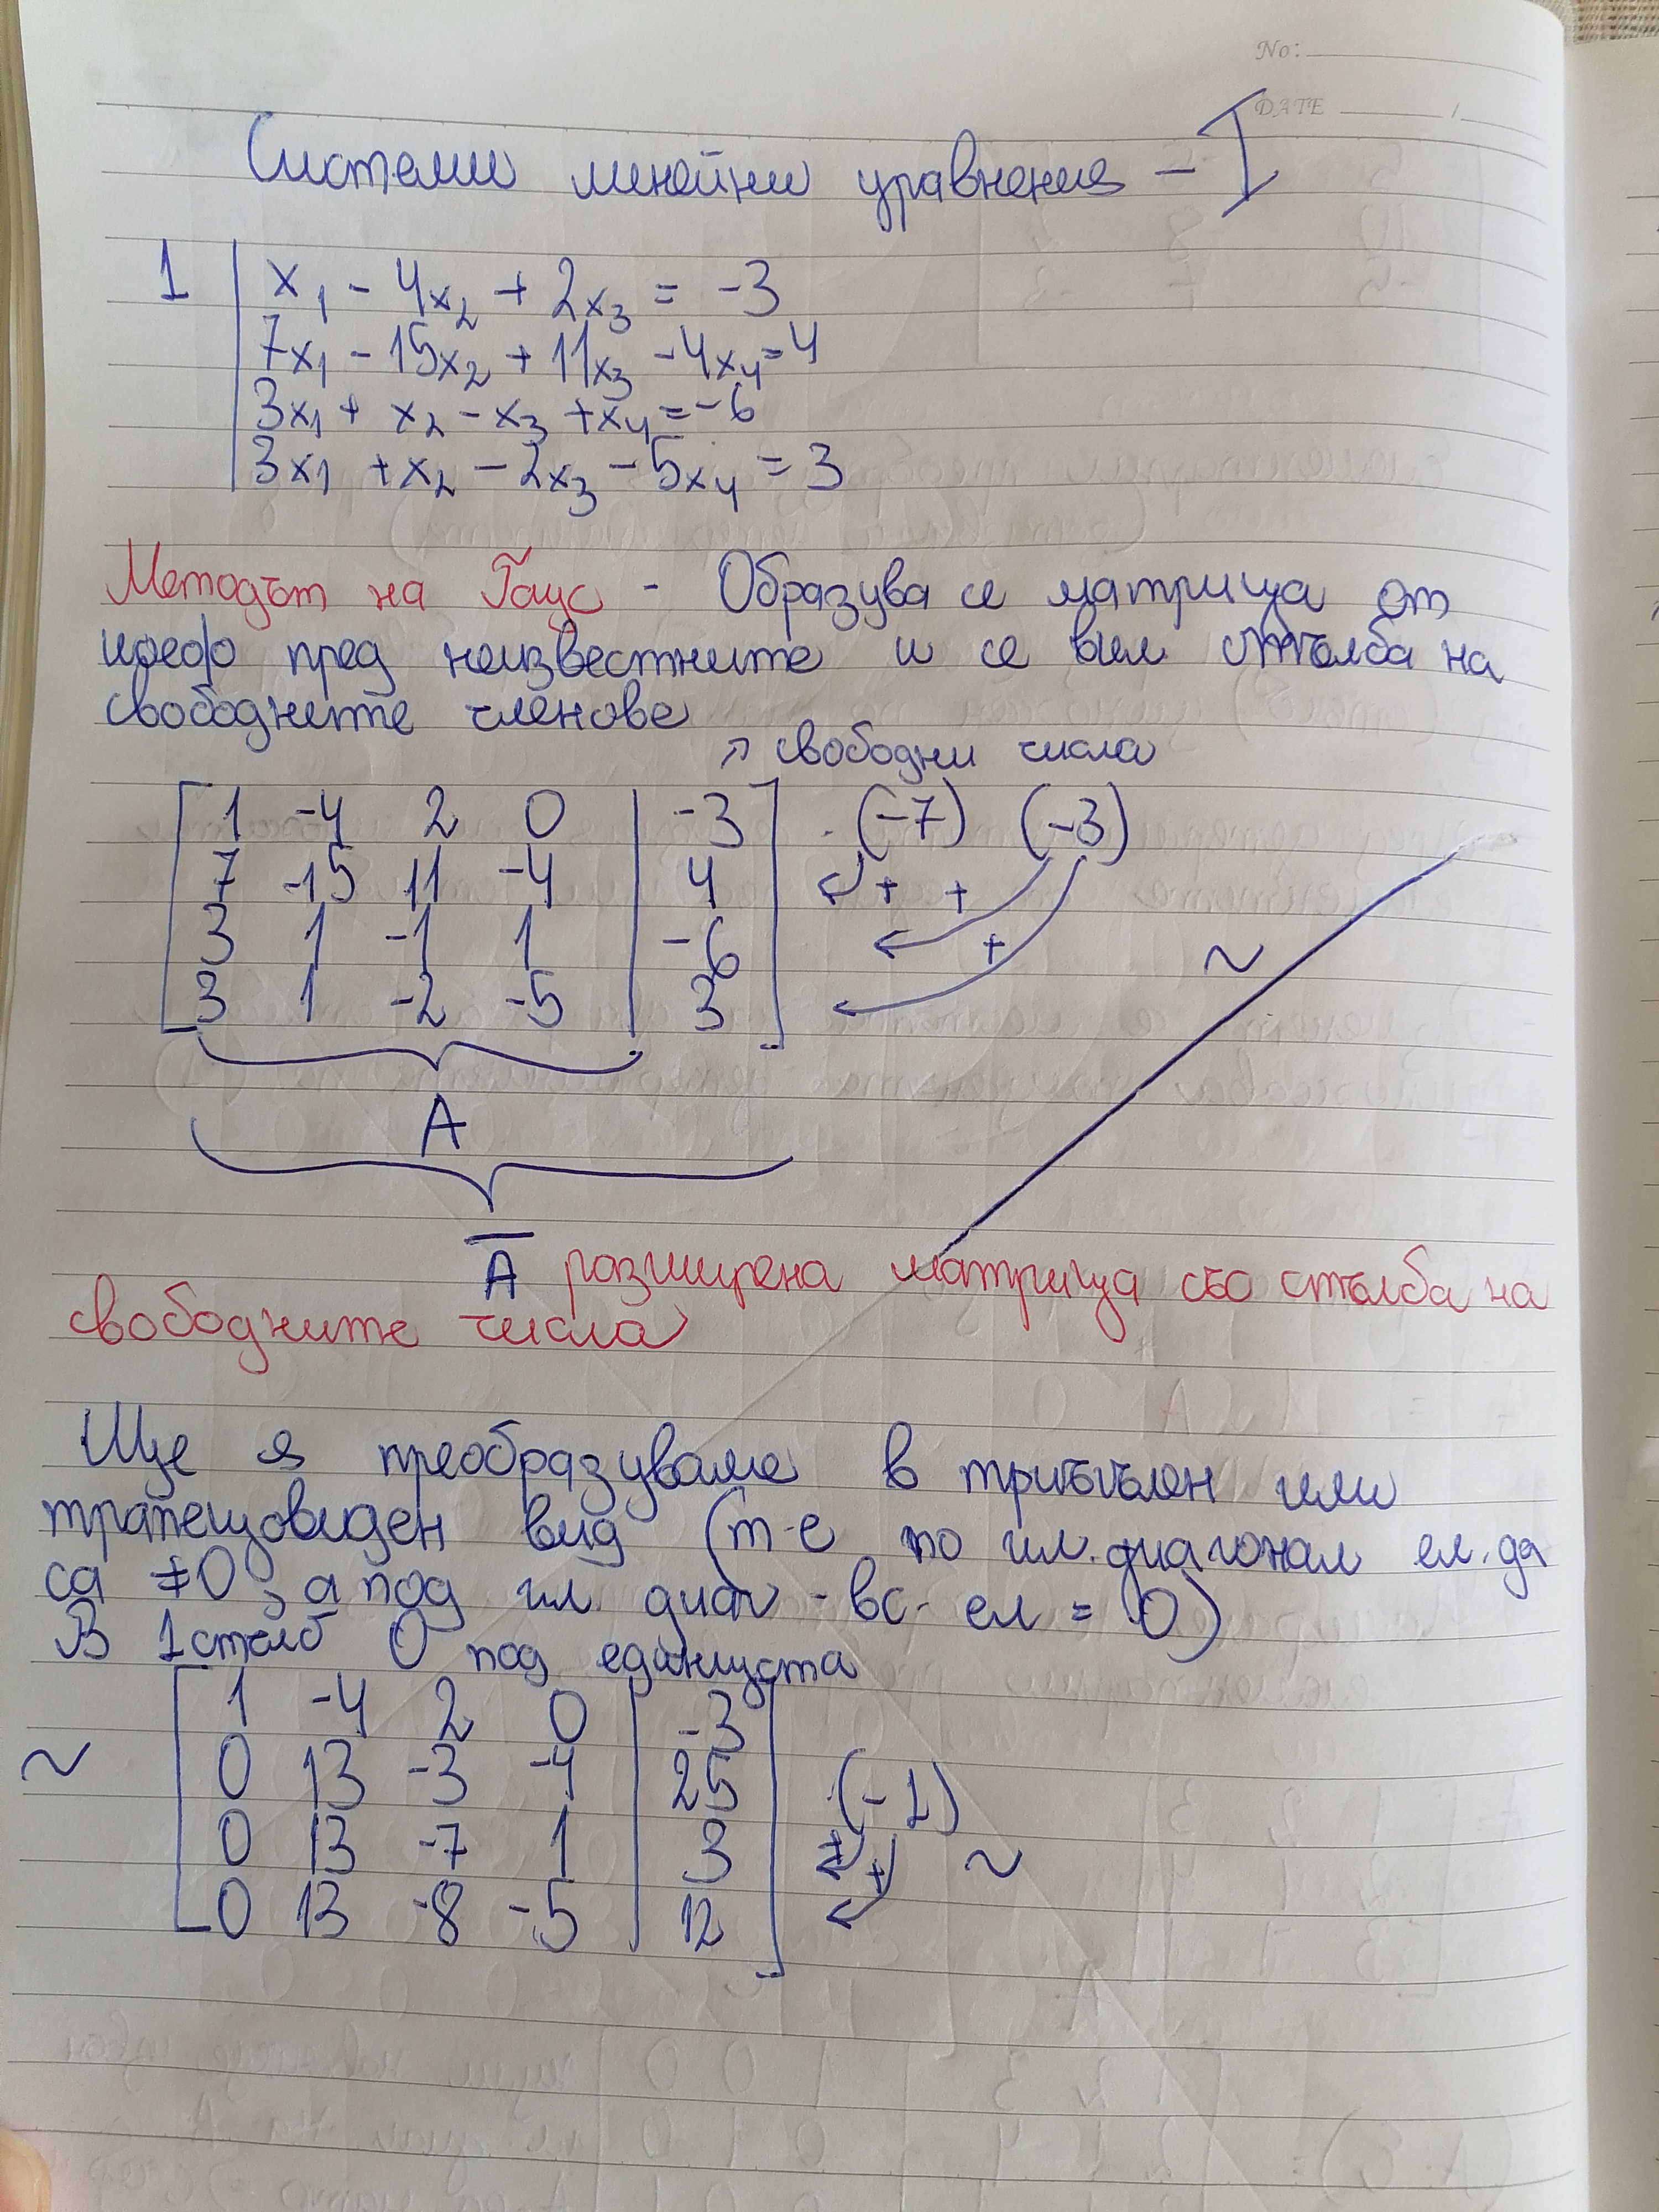 No:
DATE
Системи линейни уравнения - I
1 | x₁ - 4x₂ + 2x₃ = -3
7x₁ - 15x₂ + 11x₃ - 4x₄ = 4
3x₁ + x₂ - x₃ + x₄ = -6
3x₁ + x₂ - 2x₃ - 5x₄ = 3
Методът на Гаус - Образува се матрица от
коеф пред неизвестните и се вкл стълба на
свободните членове
↗ свободни числа
1 -4 2 0 | -3 .(-7) (-3)
7 -15 11 -4 | 4 + +
3 1 -1 1 | -6 + ~
3 1 -2 -5 | 3
A
A̅ разширена матрица със стълба на
свободните числа
Ще я преобразуваме в триъгълен или
трапецовиден вид (т-е по гл. диагонал ел. да
са ≠0, а под гл. диаг - вс. ел = 0)
В 1 стълб 0 под единицата
1 -4 2 0 | -3
~ 0 13 -3 -4 | 25 .(-1)
0 13 -7 1 | 3 + + ~
0 13 -8 -5 | 12